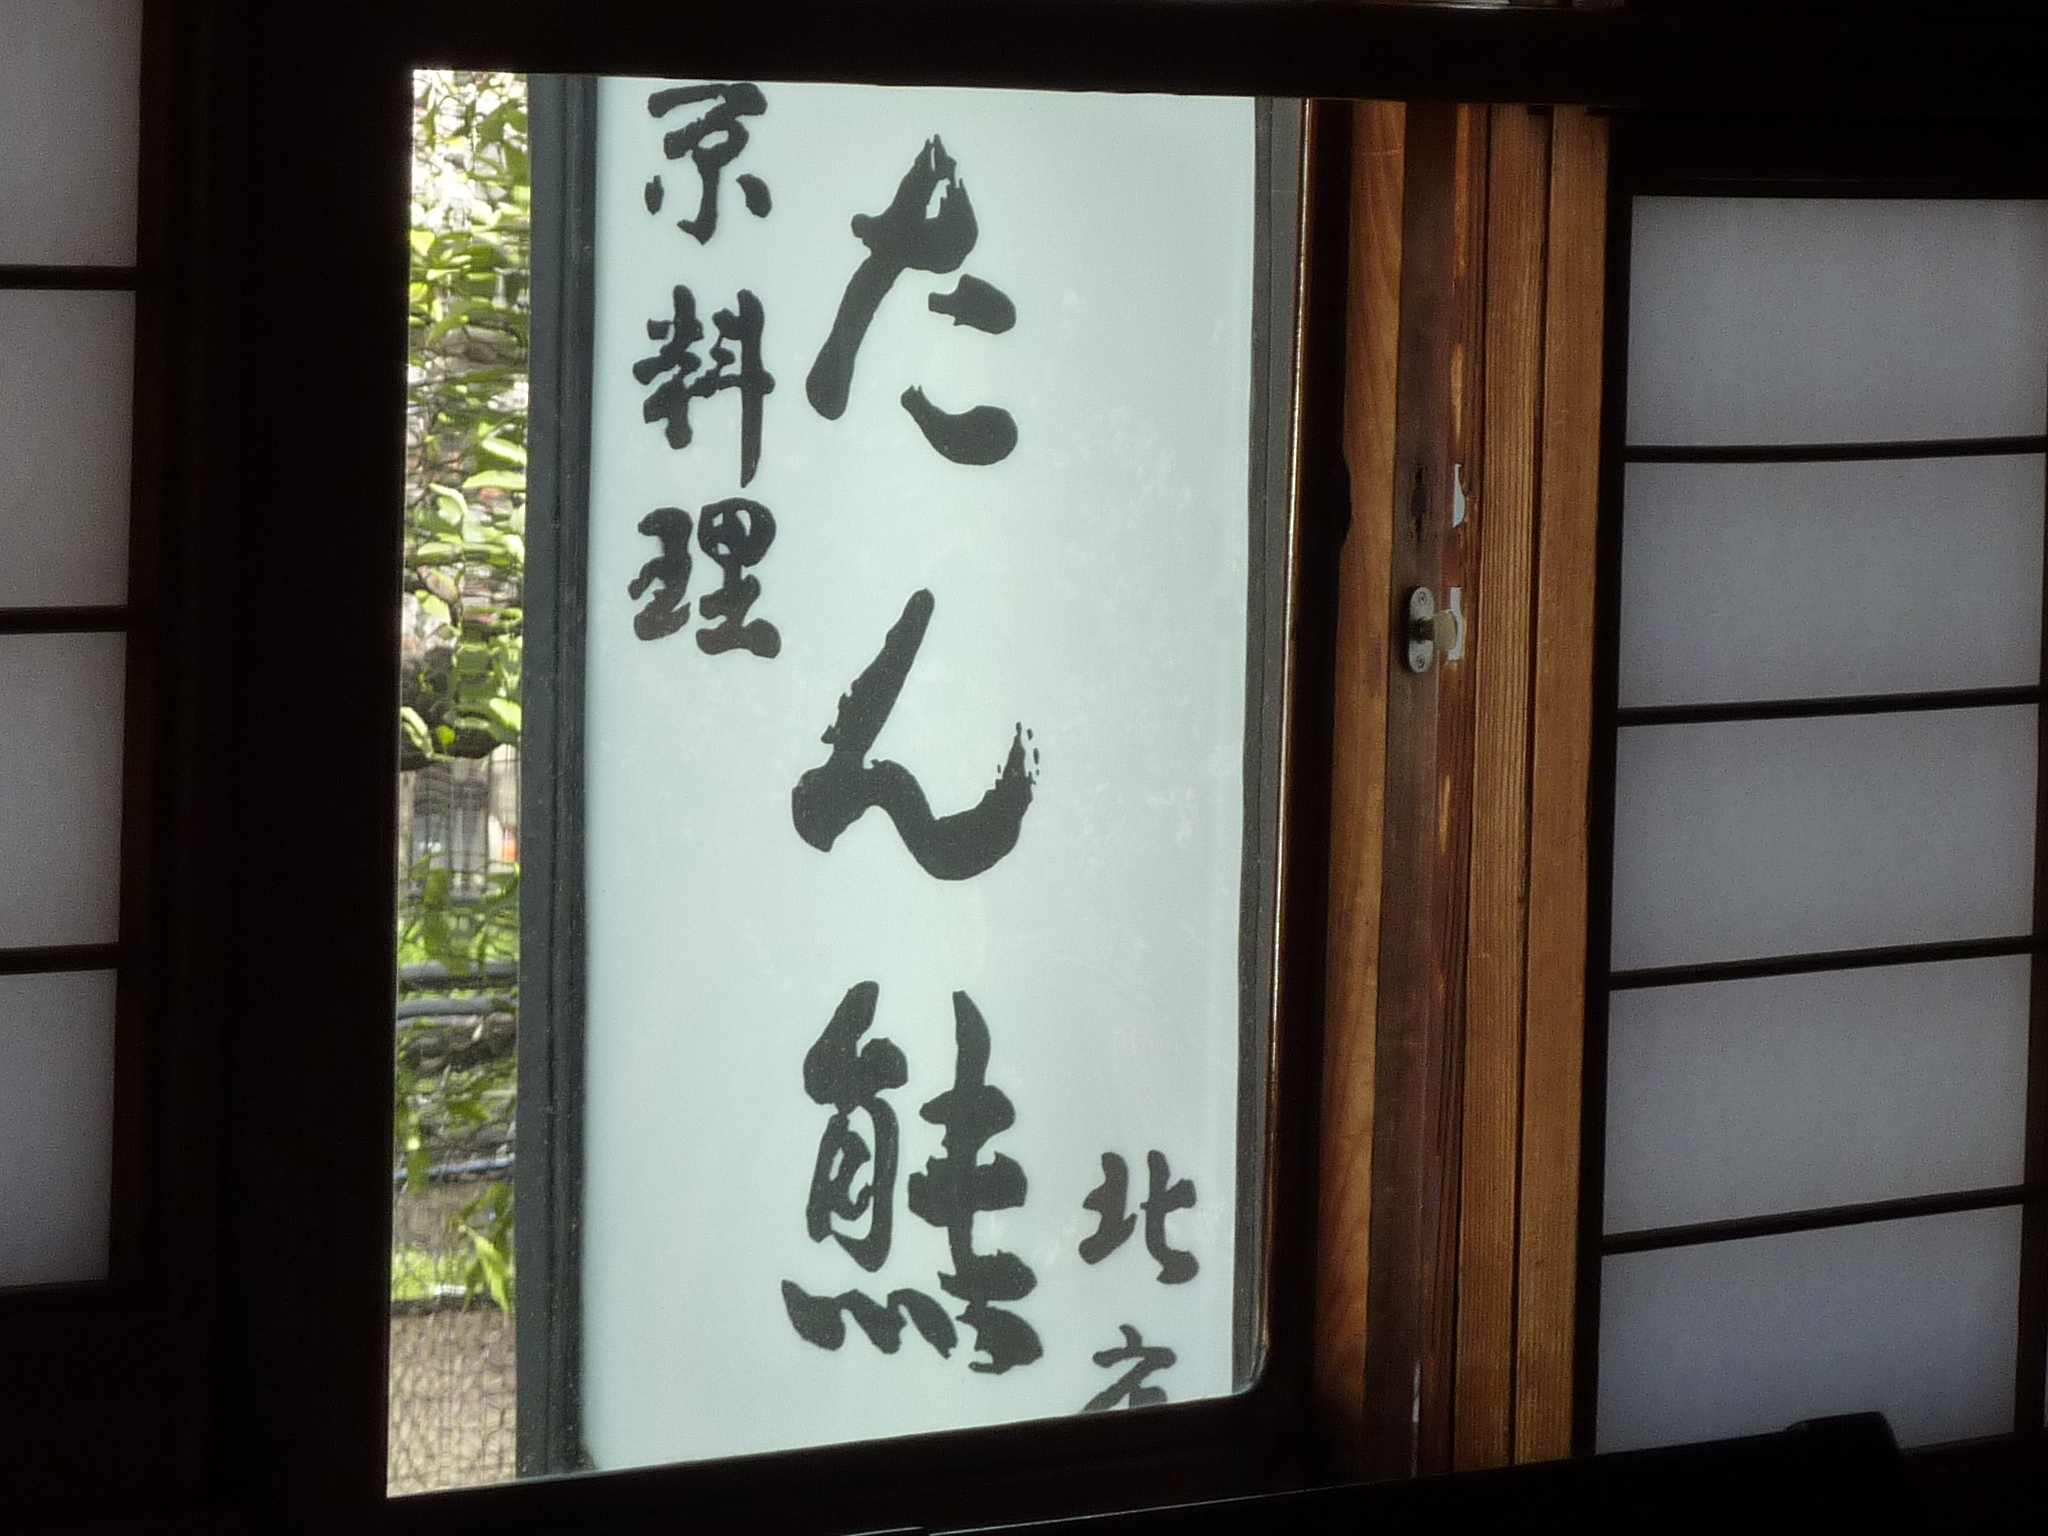 京料理
たん熊
北店